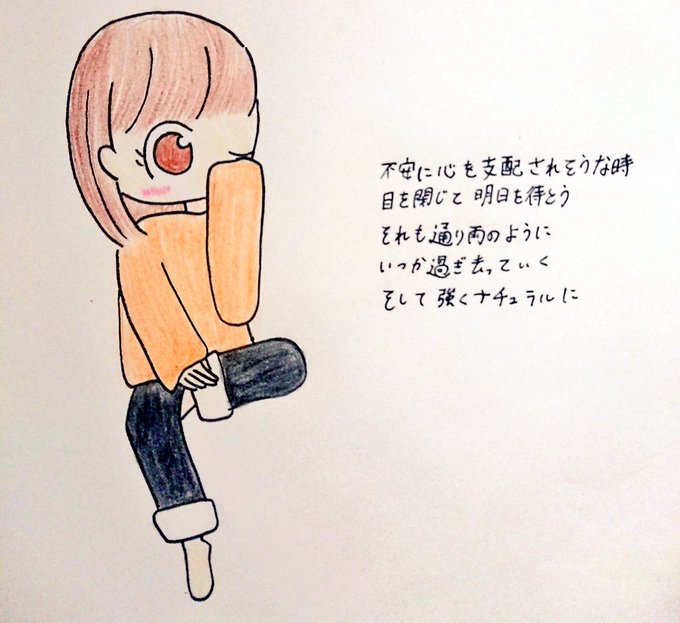 不安に心を支配されそうな時
目を閉じて明日を待とう
それも通り雨のように
いつか過ぎ去っていく
そして強くナチュラルに